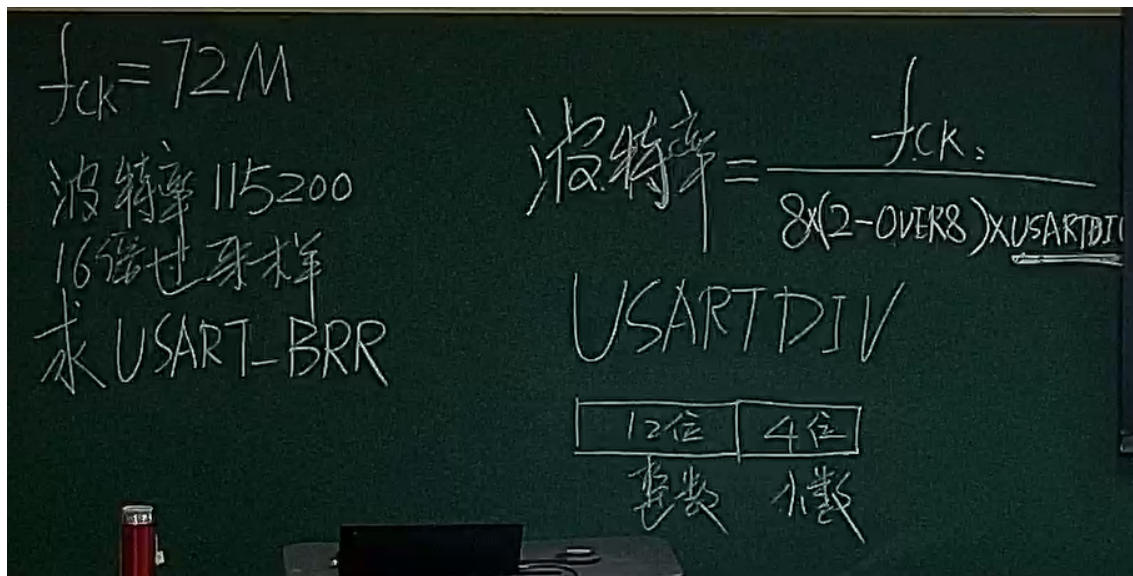 fCK=72M
波特率 115200
16倍过采样
求 USART_BRR
波特率=
fCK
8×(2-OVER8)×USARTDI
USARTDIV
12位 4位
整数 小数